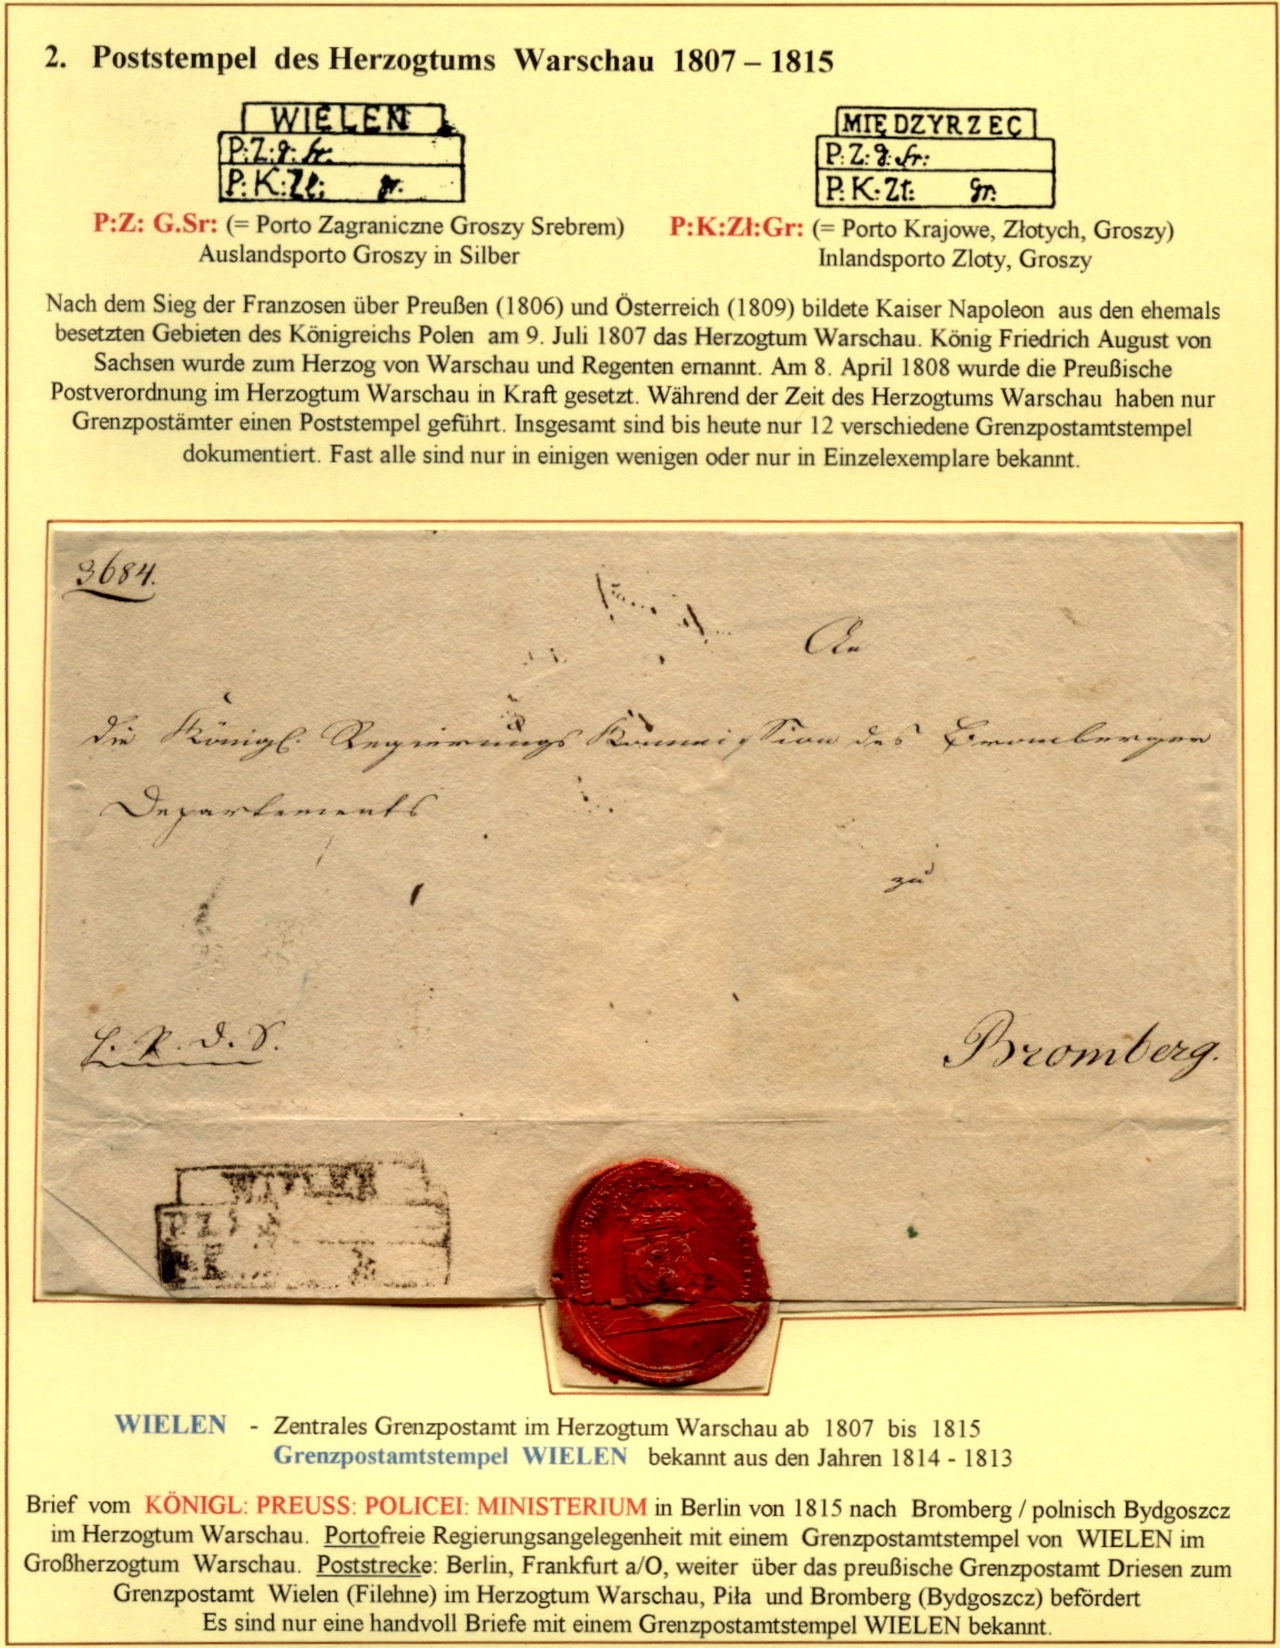 2. Poststempel des Herzogtums Warschau 1807 – 1815
WIELEN
P:Z:g:sr.
P:K:Zl: gr.
MIĘDZYRZEC
P:Z:g:sr:
P:K:Zt: gr.
P:Z: G.Sr: (= Porto Zagraniczne Groszy Srebrem)
Auslandsporto Groszy in Silber
P:K:Zł:Gr: (= Porto Krajowe, Złotych, Groszy)
Inlandsporto Zloty, Groszy
Nach dem Sieg der Franzosen über Preußen (1806) und Österreich (1809) bildete Kaiser Napoleon aus den ehemals
besetzten Gebieten des Königreichs Polen am 9. Juli 1807 das Herzogtum Warschau. König Friedrich August von
Sachsen wurde zum Herzog von Warschau und Regenten ernannt. Am 8. April 1808 wurde die Preußische
Postverordnung im Herzogtum Warschau in Kraft gesetzt. Während der Zeit des Herzogtums Warschau haben nur
Grenzpostämter einen Poststempel geführt. Insgesamt sind bis heute nur 12 verschiedene Grenzpostamtstempel
dokumentiert. Fast alle sind nur in einigen wenigen oder nur in Einzelexemplare bekannt.
3684.
An
die Königl. Regierungs Kommission des Bromberger
Departements
zu
Bromberg.
WIELEN
P.Z
K
WIELEN - Zentrales Grenzpostamt im Herzogtum Warschau ab 1807 bis 1815
Grenzpostamtstempel WIELEN bekannt aus den Jahren 1814 - 1813
Brief vom KÖNIGL: PREUSS: POLICEI: MINISTERIUM in Berlin von 1815 nach Bromberg / polnisch Bydgoszcz
im Herzogtum Warschau. Portofreie Regierungsangelegenheit mit einem Grenzpostamtstempel von WIELEN im
Großherzogtum Warschau. Poststrecke: Berlin, Frankfurt a/O, weiter über das preußische Grenzpostamt Driesen zum
Grenzpostamt Wielen (Filehne) im Herzogtum Warschau, Piła und Bromberg (Bydgoszcz) befördert
Es sind nur eine handvoll Briefe mit einem Grenzpostamtstempel WIELEN bekannt.